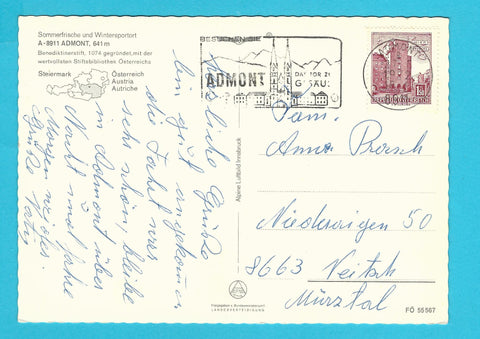 Sommerfrische und Wintersportort
A-8911 ADMONT, 641 m
Benediktinerstift, 1074 gegründet, mit der
wertvollsten Stiftsbibliothek Österreichs
Steiermark
Österreich
Austria
Autriche
BESUCHEN SIE
ADMONT
DAS TOR Z.
GESÄUSE
liebe Grüße
bin gut angekommen
die Fahrt war
sehr schön, bleibe
in Admont über
Nacht und fahre
Morgen weiter.
Grüße
Alpine Luftbild Innsbruck
Fam.
Anna
Niederaigen 50
8663 Veitsch
Mürztal
LANDESVERTEIDIGUNG
FÖ 55567